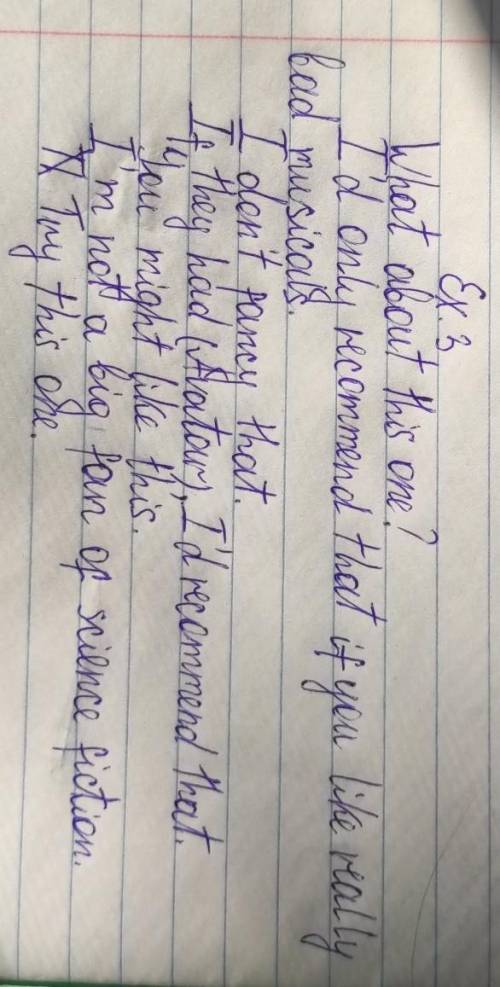 Ex. 3
What about this one?
I'd only recommend that if you like really
bad musicals.
I don't fancy that.
If they had (Avatar), I'd recommend that.
You might like this.
I'm not a big fan of science fiction.
Try this one.